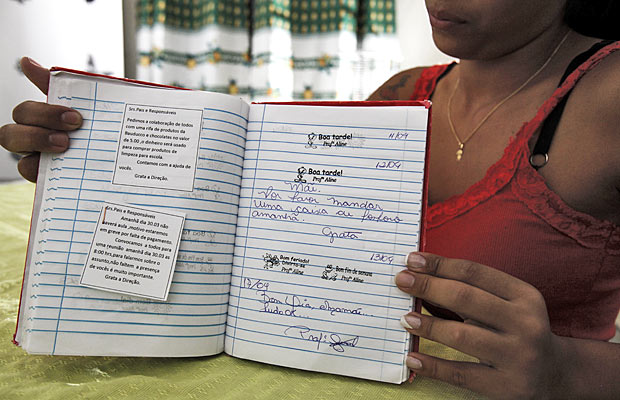 Srs.Pais e Responsáveis
Pedimos a colaboração de todos
com uma rifa de produtos da
Bauducco e chocolates no valor
de 5,00 ,o dinheiro será usado
para comprar produtos de
limpeza para escola.
Contamos com a ajuda de
vocês.
Grata a Direção.
Srs.Pais e Responsáveis
Amanhã dia 30.03 não
haverá aula ,motivo estaremos
em greve por falta de pagamento.
Convocamos a todos para
uma reunião amanhã dia 30.03 as
8:00 hrs,para falarmos sobre o
assunto,não faltem a presença
de vocês é muito importante.
Grata a Direção.
Boa tarde!
Profª Aline
11/09
Boa tarde!
Profª Aline
12/09
Mãe,
Por favor mandar
uma caixa de
amanhã.
Grata
13/09
Bom feriado!
Divirta-se
Profª Aline
Bom fim de semana
Profª Aline
17/09
Bom Dia,
tudo OK.
Profª